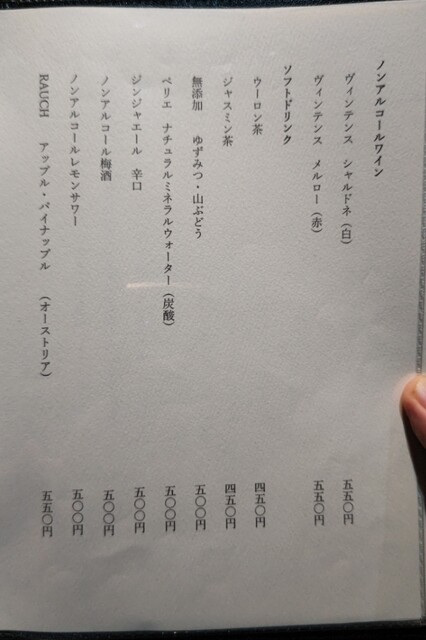 ノンアルコールワイン
ヴィンテンス シャルドネ（白） 五五〇円
ヴィンテンス メルロー（赤） 五五〇円
ソフトドリンク
ウーロン茶 四五〇円
ジャスミン茶 四五〇円
無添加 ゆずみつ・山ぶどう 五〇〇円
ペリエ ナチュラルミネラルウォーター（炭酸） 五〇〇円
ジンジャエール 辛口 五〇〇円
ノンアルコール梅酒 五〇〇円
ノンアルコールレモンサワー 五〇〇円
RAUCH アップル・パイナップル （オーストリア） 五五〇円